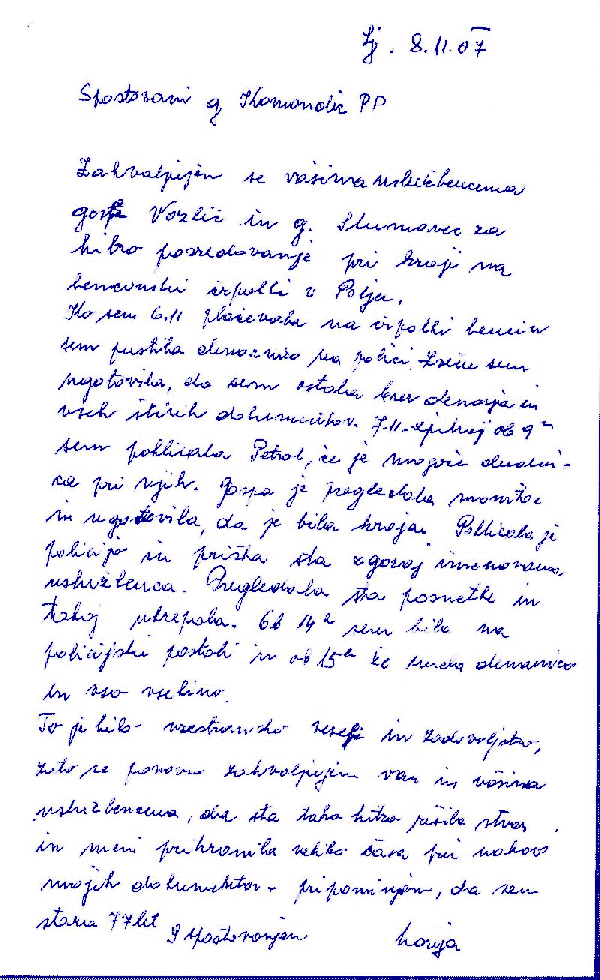 Lj. 8.11.07
Spoštovani g Komandir PP
Zahvaljujem se vašima uslužbencema
gospe Vozlič in g. Slumavec za
hitro posredovanje pri kraji na
bencinski črpalki v Polju.
Ko sem 6.11 plačevala na črpalki bencin
sem pustila denarnico na polici. Kasneje sem
ugotovila, da sem ostala brez denarja in
vseh štirih dokumentov. 7.11. zjutraj ob 9h
sem poklicala Petrol, če je mogoče denarni-
ca pri njih. Gospa je pregledala monitor
in ugotovila, da je bila kraja. Poklicala je
policijo in prišla sta zgoraj imenovana
uslužbenca. Pregledala sta posnetke in
takoj ukrepala. Ob 14h sem bila na
policijski postaji in ob 15h že imela denarnico
in vso vsebino.
To je bilo vzestransko veselje in zadovoljstvo,
zato se ponovno zahvaljujem vam in vašima
uslužbencema, da sta tako hitro rešila stvar
in meni prihranila veliko časa pri nakovo
mojih dokumentov - pripominjam, da sem
stara 77 let
S spoštovanjem Marija